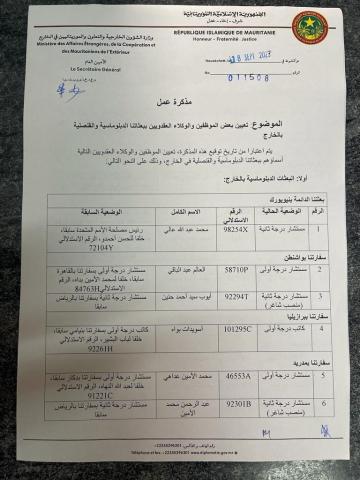 الجمهورية الإسلامية الموريتانية
شرف - إخاء - عدل
RÉPUBLIQUE ISLAMIQUE DE MAURITANIE
Honneur - Fraternité - Justice
وزارة الشؤون الخارجية والتعاون والموريتانيين في الخارج
Ministère des Affaires Étrangères, de la Coopération et des Mauritaniens de l'Extérieur
الأمين العام
Le Secrétaire Général
Nouakchott, le 28 SEPT 2023
No 011508
مذكرة عمل
الموضوع: تعيين بعض الموظفين والوكلاء العقدويين ببعثاتنا الدبلوماسية والقنصلية بالخارج
يتم اعتبارا من تاريخ توقيع هذه المذكرة، تعيين الموظفين والوكلاء العقدويين التالية
أسماؤهم ببعثاتنا الدبلوماسية والقنصلية في الخارج، وذلك على النحو التالي:
أولا: البعثات الدبلوماسية بالخارج:
بعثتنا الدائمة بنيويورك
الرقم الوضعية الحالية الرقم الاستدلالي الاسم الكامل الوضعية السابقة
1 مستشار درجة ثانية 98254X محمد عبد الله عالي رئيس مصلحة الأمم المتحدة سابقا، خلفا للحسن أحمدو، الرقم الاستدلالي 72104Y
سفارتنا بواشنطن
2 مستشار درجة أولى 58710P العالم عبد الباقي مستشار درجة أولى بسفارتنا بالقاهرة سابقا، خلفا لمحمد الأمين بداه، الرقم الاستدلالي 84763H
3 مستشار درجة ثانية (منصب شاغر) 92294T أيوب سيد أحمد حنين مستشار درجة ثانية بسفارتنا بالرياض سابقا
سفارتنا ببرازيليا
4 كاتب درجة أولى 101295C آسويدات بواه كاتب درجة أولى بسفارتنا بنيامي سابقا، خلفا لباب البشير، الرقم الاستدلالي 92261H
سفارتنا بمدريد
5 مستشار درجة أولى 46553A محمد الأمين عداهي مستشار درجة أولى بسفارتنا بدكار سابقا، خلفا لعبد الله النهاه، الرقم الاستدلالي 91221C
6 مستشار درجة ثانية (منصب شاغر) 92301B عبد الرحمن محمد الأمين مستشار درجة ثانية بسفارتنا بالرياض سابقا
Téléphone et fax : +22238296301 - www.diplomatie.gov.mr